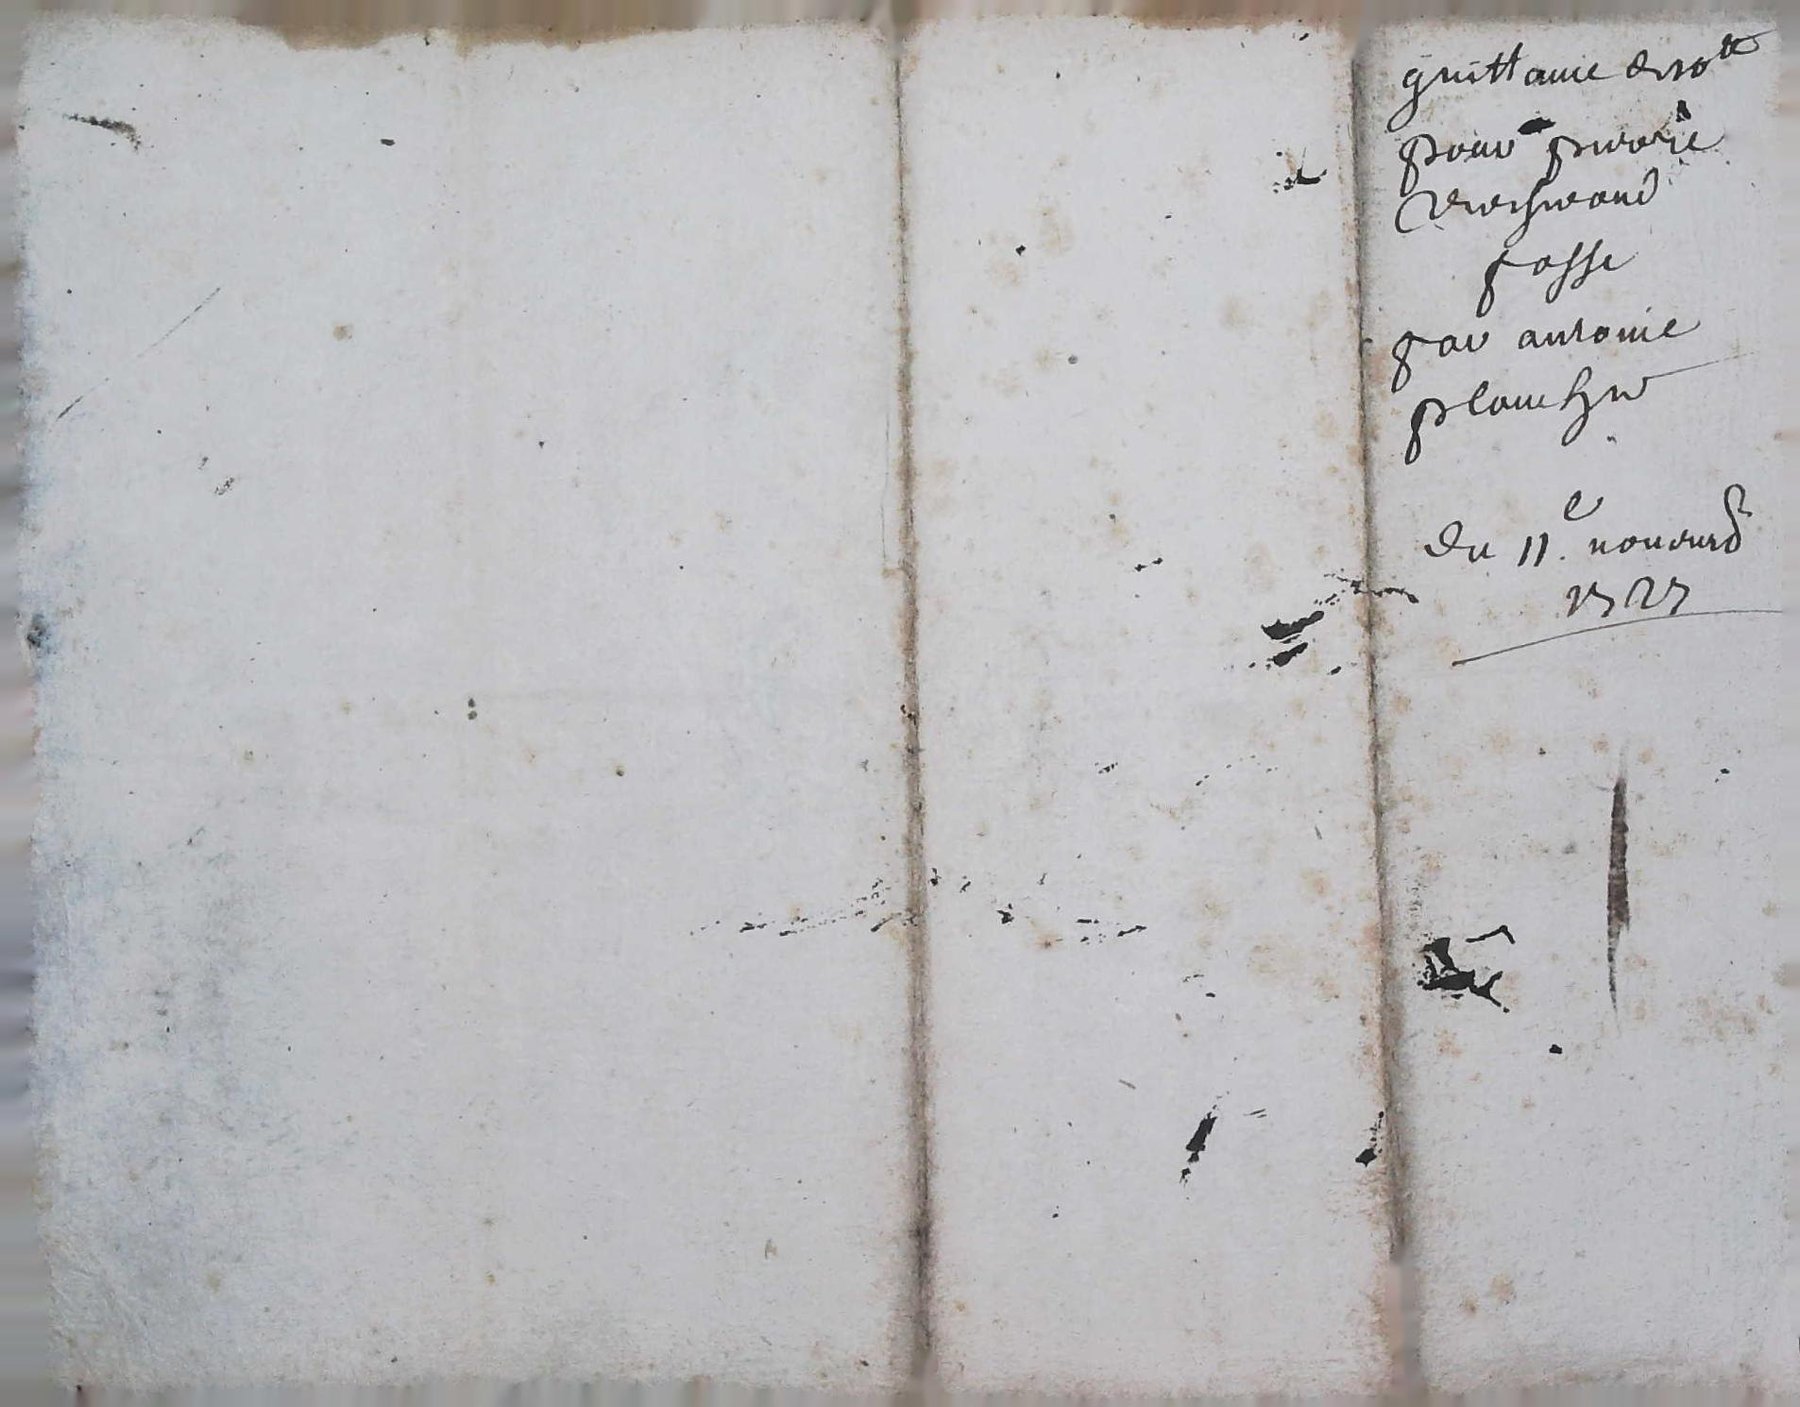 quittance de 10ᵗᵗ
pour pierre
passé
par antoine
planche
du 11ᵉ. novemb
1727